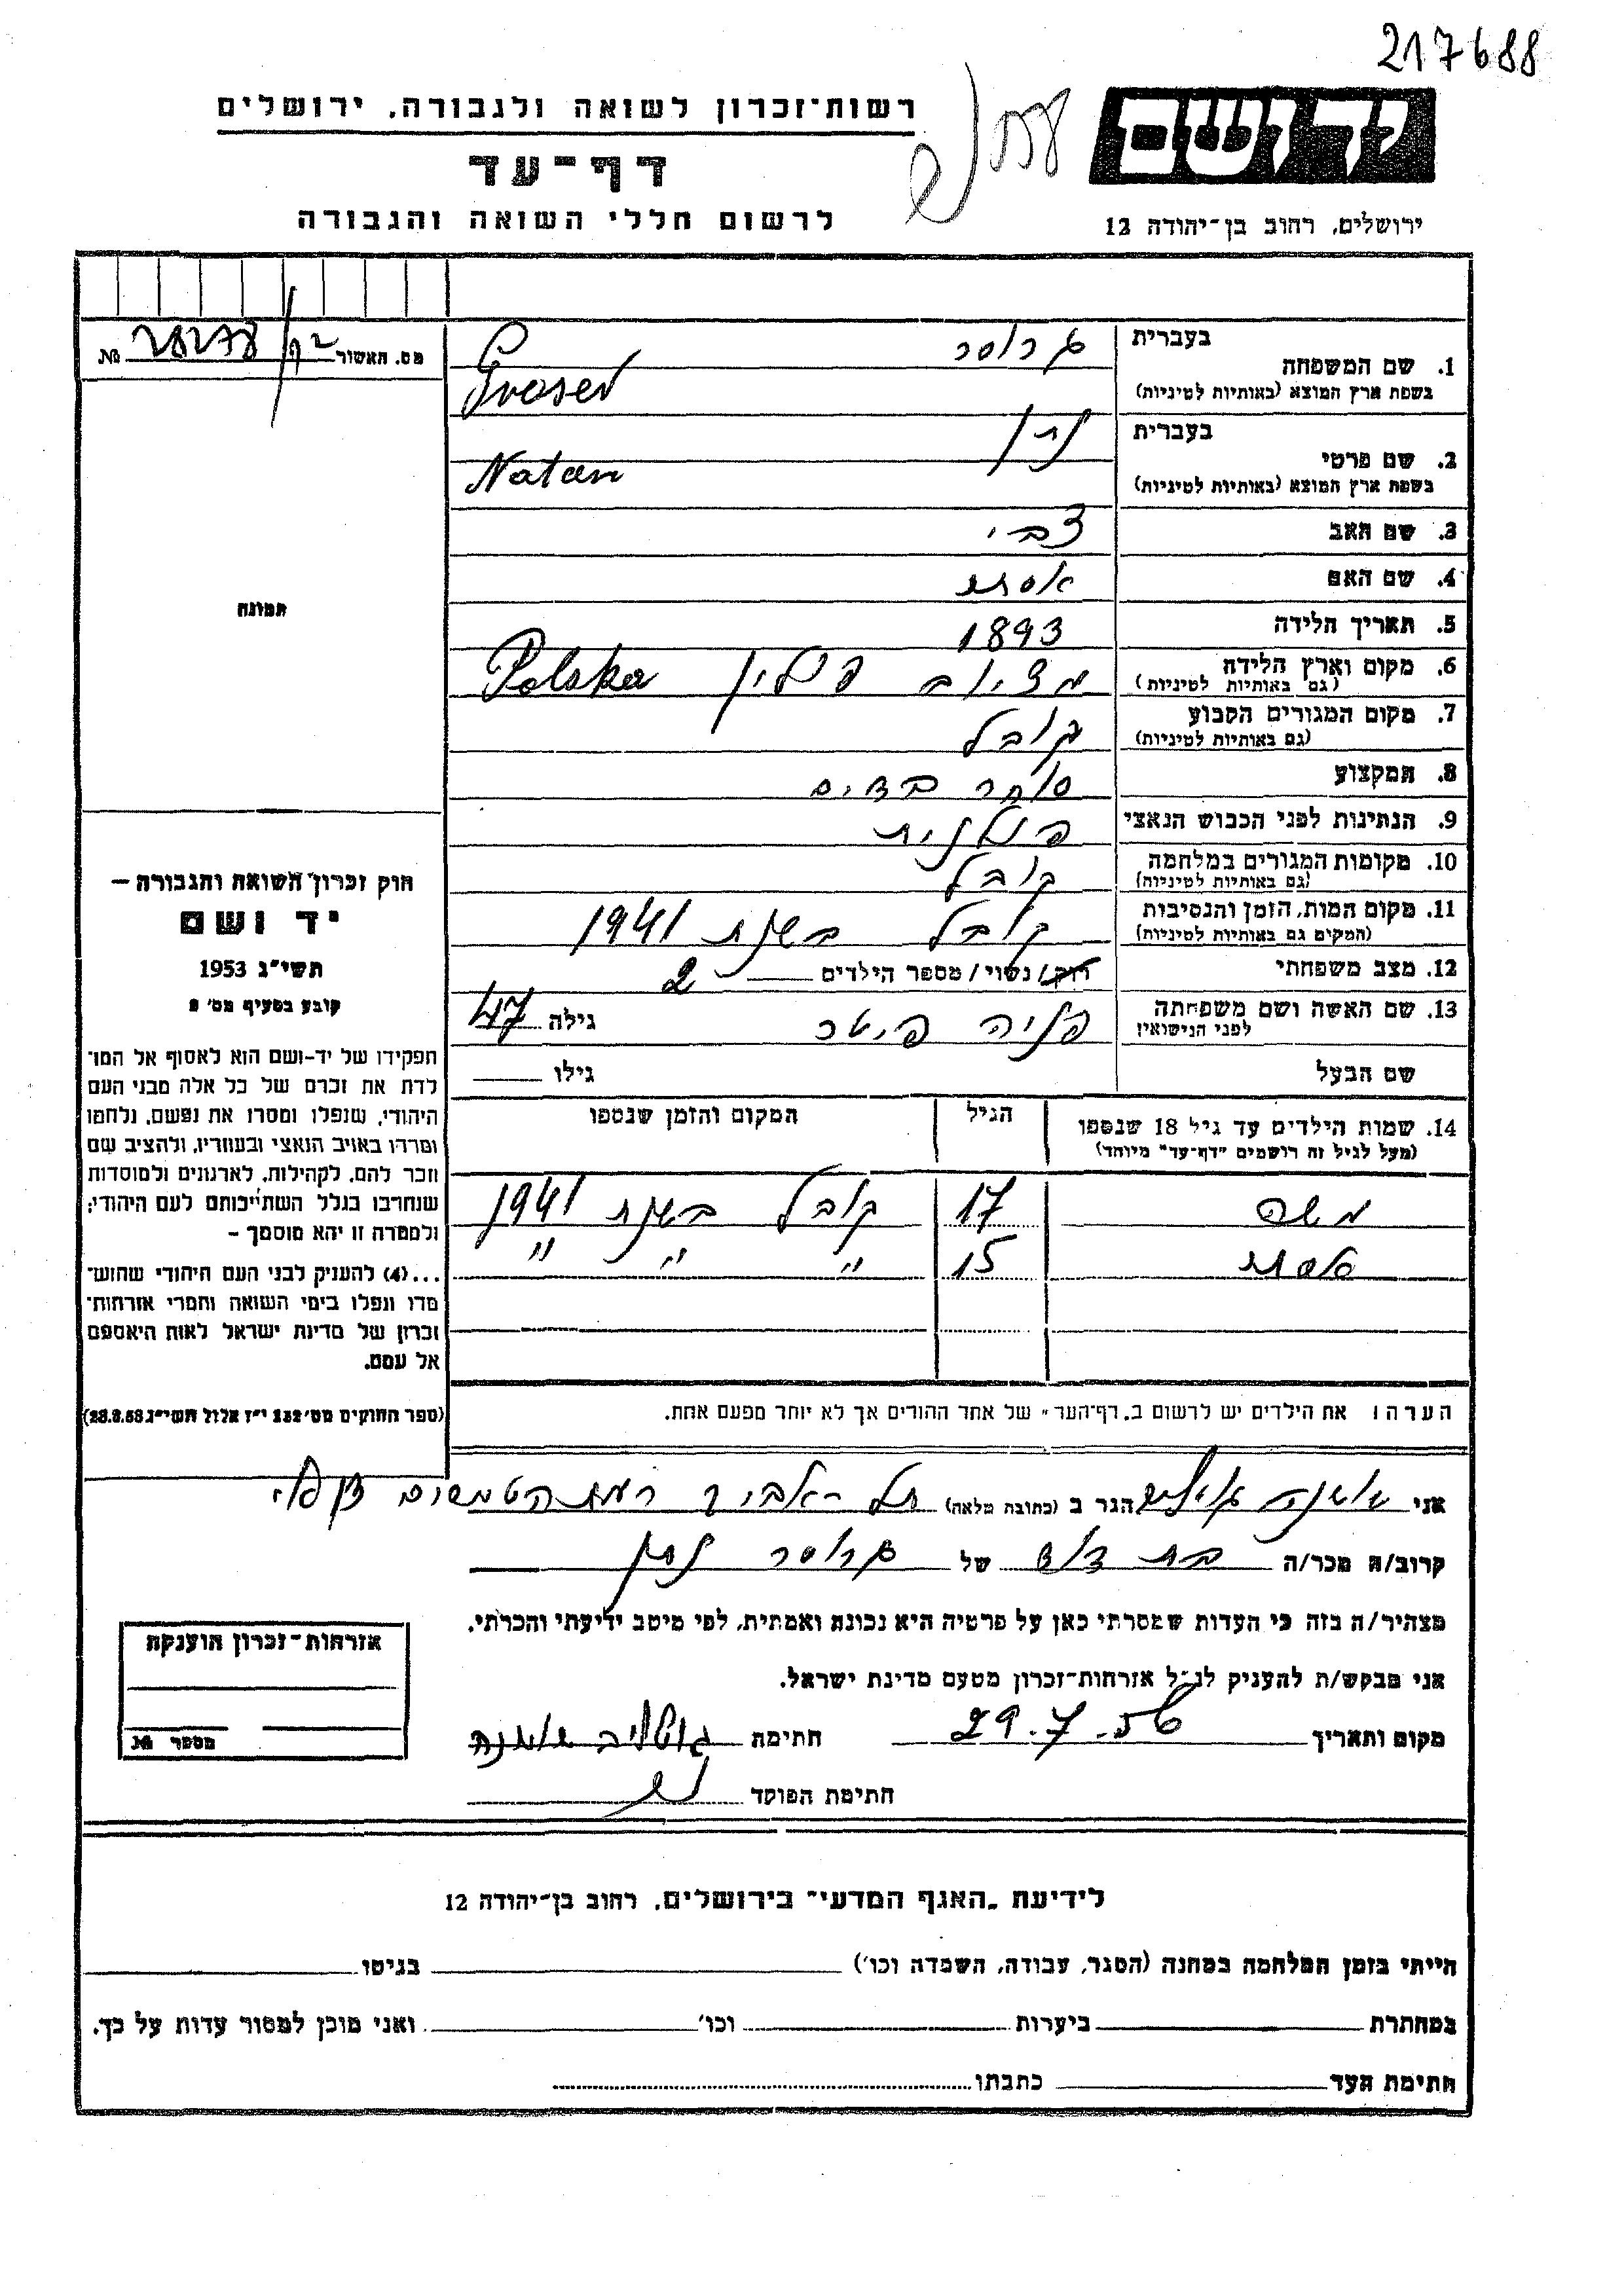 217688
יד ושם
ירושלים, רחוב בן־יהודה 12
רשות־זכרון לשואה ולגבורה, ירושלים
דף־עד
לרשום חללי השואה והגבורה
מס. האשור №
בעברית גרוסר
1. שם המשפחה
בשפת ארץ המוצא (באותיות לטיניות) Groser
בעברית נתן
2. שם פרטי
בשפת ארץ המוצא (באותיות לטיניות) Natan
3. שם האב צבי
4. שם האם אסתר
5. תאריך הלידה 1893
6. מקום וארץ הלידה מציוב פולין Polska
(גם באותיות לטיניות)
7. מקום המגורים הקבוע קובל
(גם באותיות לטיניות)
8. המקצוע סוחר בדים
9. הנתינות לפני הכבוש הנאצי פולנית
10. מקומות המגורים במלחמה קובל
(גם באותיות לטיניות)
11. מקום המות, הזמן והנסיבות קובל בשנת 1941
(המקום גם באותיות לטיניות)
12. מצב משפחתי רוק/נשוי/מספר הילדים 2
13. שם האשה ושם משפחתה לפני הנישואין פניה גילה 47
שם הבעל גילו
14. שמות הילדים עד גיל 18 שנספו הגיל המקום והזמן שנספו
(מעל לגיל זה רושמים "דף־עד" מיוחד)
משה 17 קובל בשנת 1941
אסתר 15 " " "
הערה: את הילדים יש לרשום ב„דף־העד" של אחד ההורים אך לא יותר מפעם אחת.
תמונה
חוק זכרון השואה והגבורה —
יד ושם
תשי"ג 1953
קובע בסעיף מס' 2
תפקידו של יד-ושם הוא לאסוף אל המו־
לדת את זכרם של כל אלה מבני העם
היהודי, שנפלו ומסרו את נפשם, נלחמו
ומרדו באויב הנאצי ובעוזריו, ולהציב שם
וזכר להם, לקהילות, לארגונים ולמוסדות
שנחרבו בגלל השתייכותם לעם היהודי;
ולמטרה זו יהא מוסמך —
...(4) להעניק לבני העם היהודי שהוש־
מדו ונפלו בימי השואה והמרי אזרחות־
זכרון של מדינת ישראל לאות היאספם
אל עמם.
(ספר החוקים מס' 132 י"ז אלול תשי"ג 28.8.53)
אני שושנה הגר ב (כתובת מלאה) תל־אביב
קרוב/ה מכר/ה בת דוד של גרוסר נתן
מצהיר/ה בזה כי העדות שמסרתי כאן על פרטיה היא נכונה ואמתית, לפי מיטב ידיעתי והכרתי.
אני מבקש/ת להעניק לנ"ל אזרחות־זכרון מטעם מדינת ישראל.
מקום ותאריך 29.7.56 חתימה שושנה
חתימת הפוקד
אזרחות־זכרון הוענקה
מספר №
לידיעת „האגף המדעי" בירושלים, רחוב בן־יהודה 12
הייתי בזמן המלחמה במחנה (הסגר, עבודה, השמדה וכו') בגיטו
במחתרת ביערות וכו' ואני מוכן למסור עדות על כך.
חתימת העד כתבתו